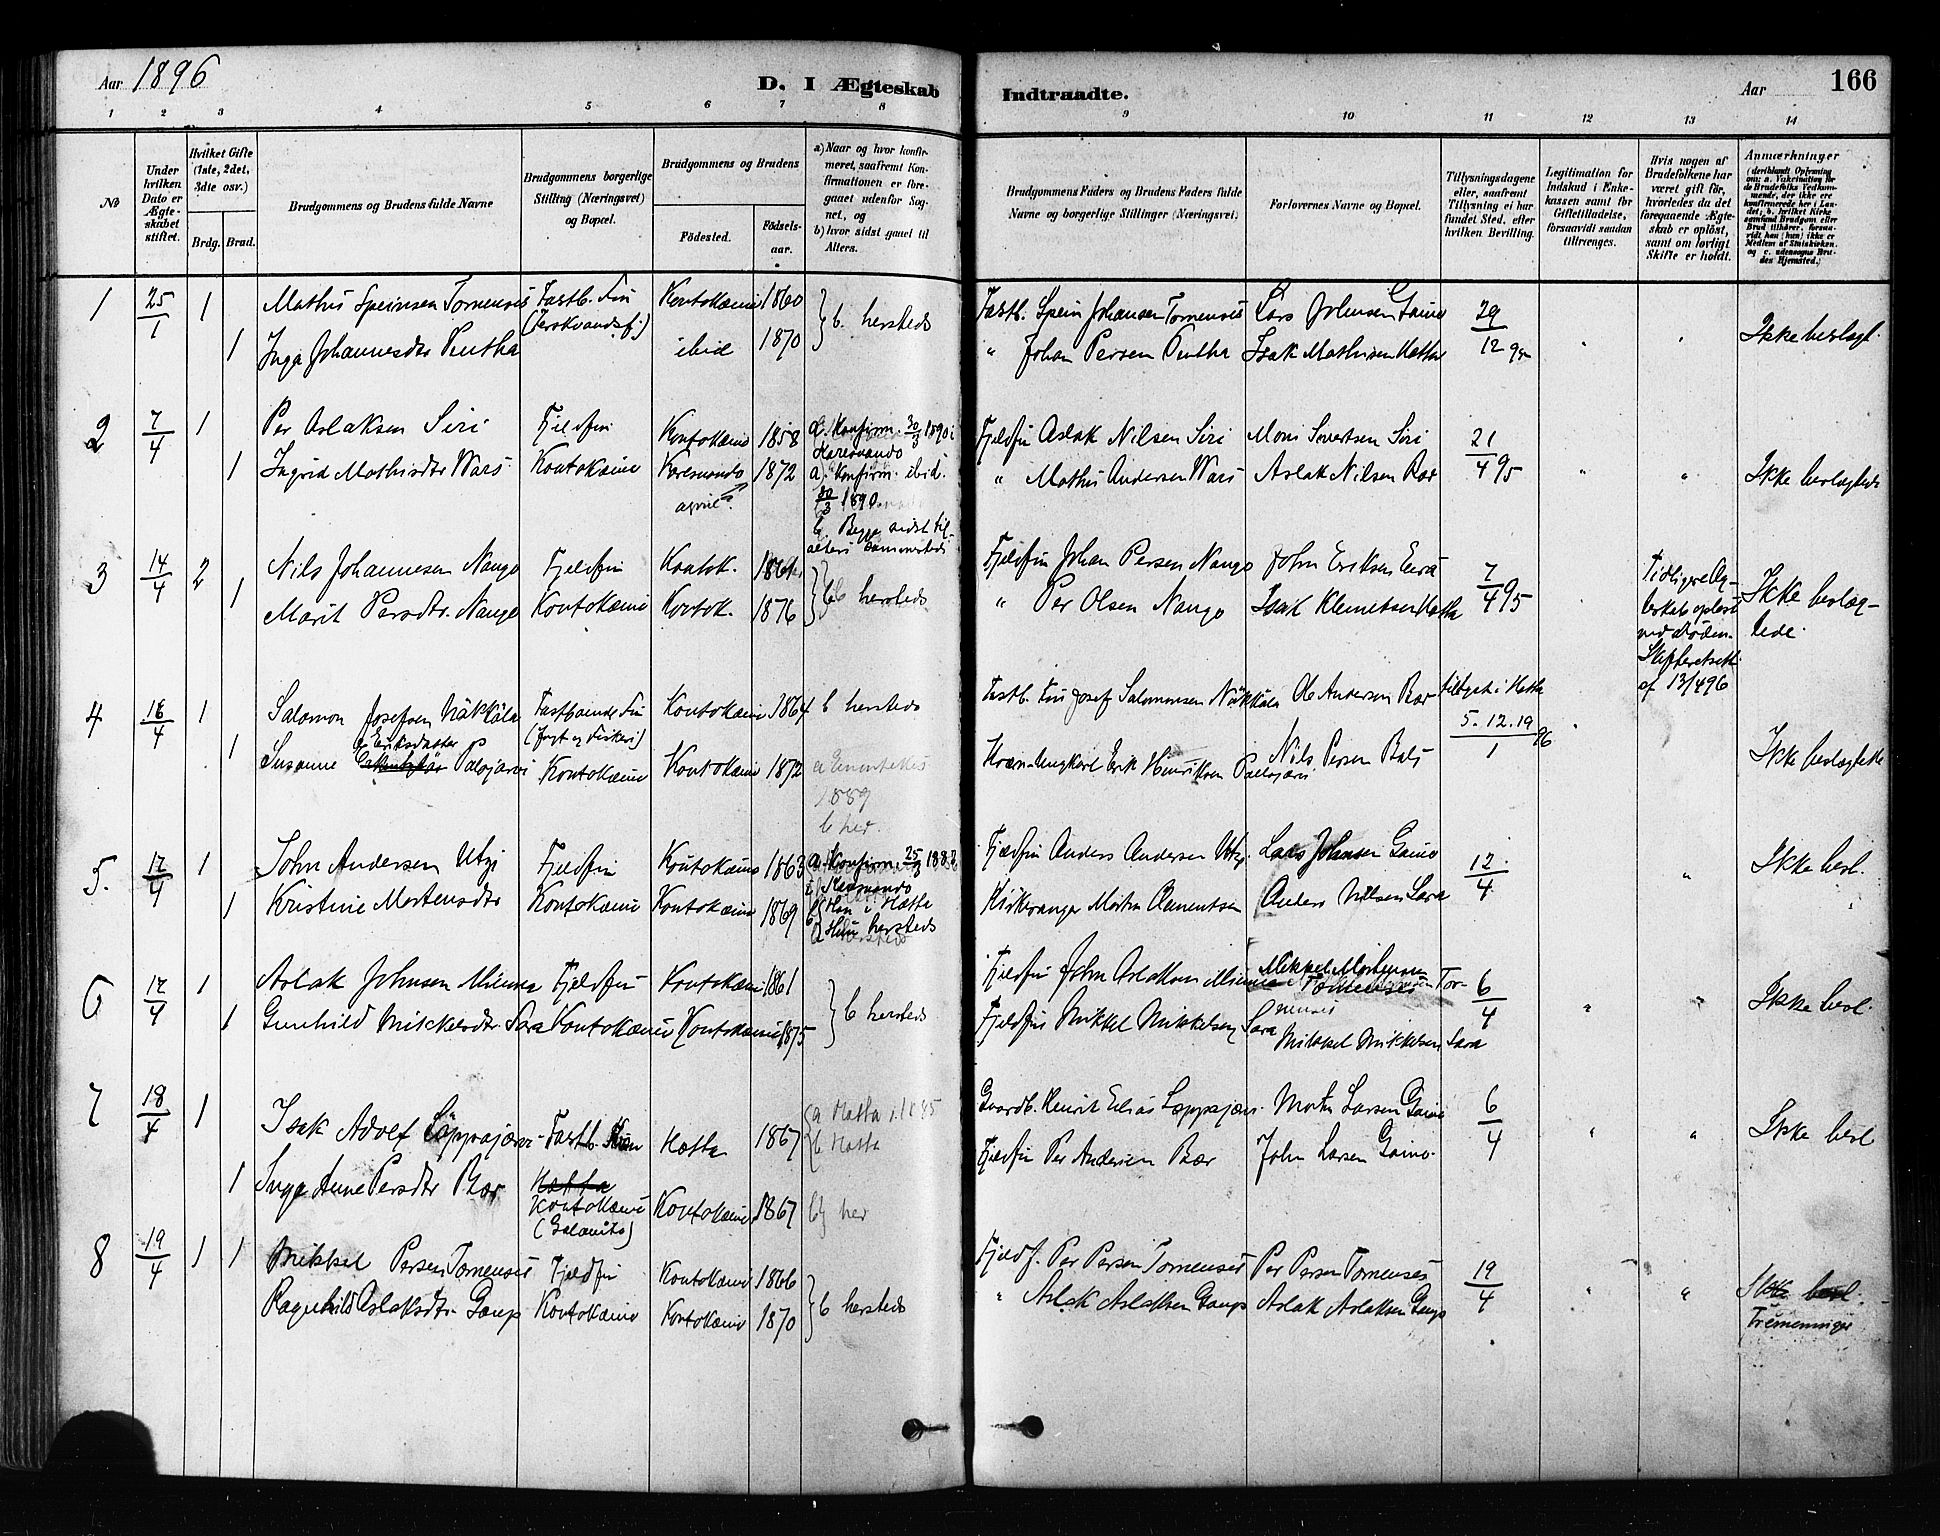 Aar 1896
D. I Ægteskab
Indtraadte.
Aar
166
1 2 3 4 5 6 7 8 9 10 11 12 13 14
No
Under hvilken Dato er Ægteskabet stiftet.
Hvilket Gifte (1ste, 2det, 3die osv.)
Brdg. Brud.
Brudgommens og Brudens fulde Navne
Brudgommens borgerlige Stilling (Næringsvei) og Bopæl.
Brudgommens og Brudens
Födested.
Födselsaar.
a) Naar og hvor konfirmeret, saafremt Konfirmationen er foregaaet udenfor Sognet, og
b) hvor sidst gaaet til Alters.
Brudgommens Faders og Brudens Faders fulde Navne og borgerlige Stillinger (Næringsvei)
Forlovernes Navne og Bopæl.
Tillysningsdagene eller, saafremt Tillysning ei har fundet Sted, efter hvilken Bevilling.
Legitimation for Indskud i Enkekassen samt for Giftetilladelse, forsaavidt saadan tiltrænges.
Hvis nogen af Brudefolkene har været gift før, hvorledes da det foregaaende Ægteskab er oplöst, samt om lovligt Skifte er holdt.
Anmærkninger
1 25/1 1 Mathis Speinsen Tornensis Fastb. Fin Kontokæino 1860
(Jerkvandsf.) } b. hersteds
1 Inga Johannesdtr ibid 1870
Fastb. Spein Johansen Tornensis Lars Johnsen Gaino 29/12 95
" Johan Persen Isak Mathisen Hætta
Ikke beslægt.
2 7/4 1 Per Aslaksen Siri Fjeldfin Kontokæino 1858 a. Konfirm. 30/3 1890 i Karesuando
1 Ingrid Mathisdtr Wars Kontokæino Karesuando 1872 a. Konfirm. ibid. 30/3 1890
b. Begge sidst til alters sammesteds
Fjeldfin Aslak Nilsen Siri Mons Sivertsen Siri 21/4 95
" Mathis Andersen Wars Aslak Nilsen Bær " "
Ikke beslægtede
3 14/4 2 Nils Johannesen Nango Fjeldfin Kontok. 1864
1 Marit Persdtr. Nango Kontokæino Kontok. 1876 } b hersteds
Fjeldfin Johan Persen Nango John Eriksen Eira 7/4 95
" Per Olsen Nango Isak Klemetsen Hætta
Tidligere Ægteskab opløst ved Døden. Skifteretsatt. af 13/4 96
Ikke beslægtede.
4 16/4 1 Salomon Josefsen Näkkälä Fastboende Fin Kontokæino 1864 b hersteds
(Jagt og Fiskeri)
1 Susanne Eriksdatter Palojärvi Kontokæino Kontokæino 1872 a Enontekis
1889
b her.
Fastb. Fin Josef Salomonsen Näkkälä Ole Andersen Bær tillyst i Hætta
5. 12. 19/1 96
Kvæn- Erik Henriksen Palojärvi Nils Persen Bals
Ikke beslægtede
5. 17/4 1 John Andersen Utzi Fjeldfin Kontokæino 1863 a. Konfirm. 25/3 1883
i Karesuando
1 Kristine Mortensdtr Kontokæino Kontokæino 1869 b Han i Hætta
Hun hersteds
Fjeldfin Anders Andersen Utzi Lars Johnsen Gaino 12/4
Kirkesanger Morten Clementsen Anders Nilsen Sara "
Ikke besl.
6 17/4 1 Aslak Johnsen Fjeldfin Kontokæino 1861
1 Gunhild Mikkelsdtr. Sara Kontokæino Kontokæino 1875 } b hersteds
Fjeldfin John Aslaksen Mikkel Mortensen Tornensis 6/4
Fjeldfin Mikkel Mikkelsen Sara Mikkel Mikkelsen Sara " "
Ikke besl.
7 18/4 1 Isak Adolf Lappajærvi Fastb. Hætta 1867 a Hætta i 1885
b Hætta
1 Inga Anne Persdtr Bær Hætta
Kontokæino Kontokæino 1867 b) her
(Galanito)
Gaardb. Henrik Elias Lappajær. Morten Larsen Gaino 6/4
Fjeldfin Per Andersen Bær John Larsen Gaino. " "
Ikke besl
8 19/4 1 1 Mikkel Persen Tornensis Fjeldfin Kontokæino 1866
Ragnhild Aslaksdtr. Gaup Kontokæino Kontokæino 1870 } b hersteds
Fjeldf. Per Persen Tornensis Per Persen Tornensis 19/4
" Aslak Aslaksen Gaup Aslak Aslaksen Gaup " "
Ikke besl.
Tremenninger